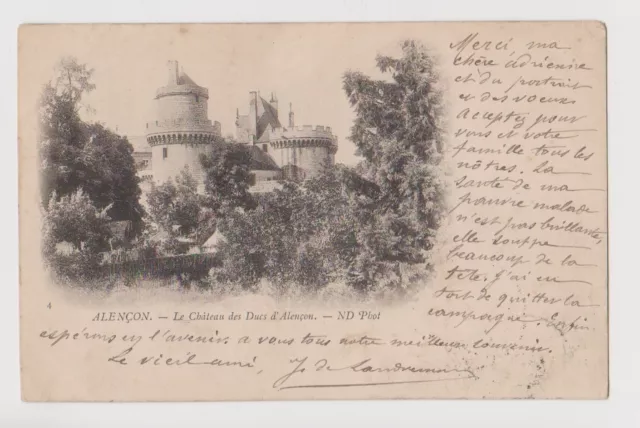 Merci, ma
chère Adrienne
et du portrait
et des voeux
acceptez pour
vous et votre
famille tous les
nôtres. La
santé de ma
pauvre malade
n'est pas brillante,
elle souffre
beaucoup de la
tête. J'ai eu
tort de quitter la
campagne. Enfin
espérons en l'avenir. a vous tous notre meilleur souvenir.
Le vieil ami, J. de
4
ALENÇON. — Le Château des Ducs d'Alençon. — ND Phot